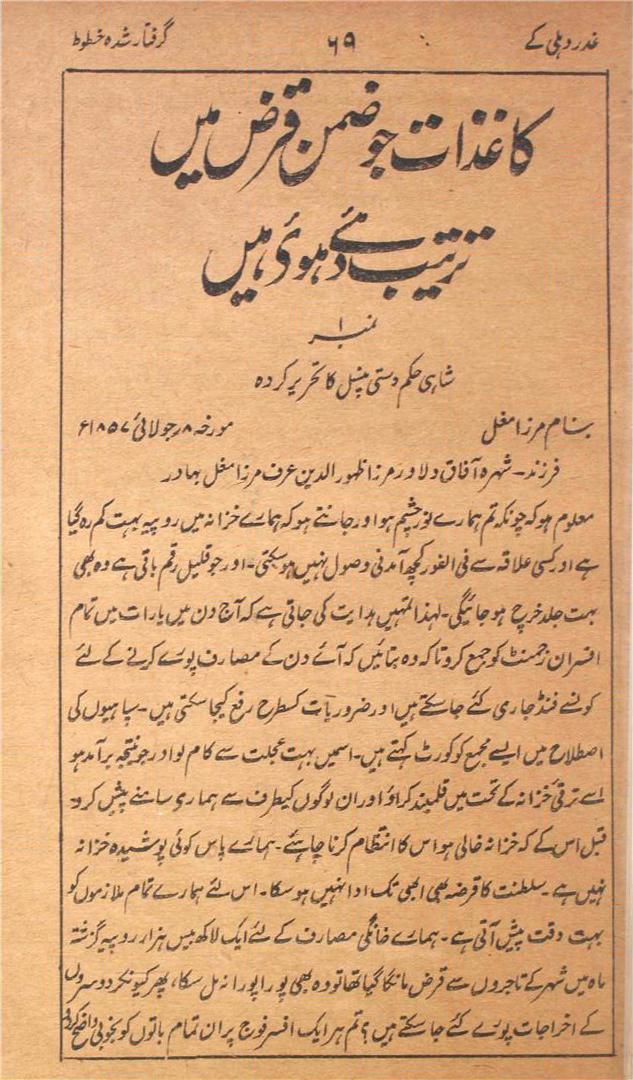 غدر دہلی کے ۶۹ گرفتار شدہ خطوط
کاغذات جو ضمن قرض میں
ترتیب دئے ہوئی ہیں
نمبر ۱
شاہی حکم دستی پنسل کا تحریر کردہ
بنام مرزا مغل مورخہ ۸ جولائی ۱۸۵۷ء
فرزند۔ شہرہ آفاق دلاور مرزا ظہور الدین عرف مرزا مغل بہادر
معلوم ہو کہ چونکہ تم ہمارے نور چشم ہو اور جانتے ہو کہ ہمارے خزانہ میں روپیہ بہت کم رہ گیا
ہے اور کسی علاقہ سے فی الفور کچھ آمدنی وصول نہیں ہو سکتی۔ اور جو قلیل رقم باقی ہے وہ بھی
بہت جلد خرچ ہو جائیگی۔ لہذا تمہیں ہدایت کی جاتی ہے کہ آج دن میں یا رات میں تمام
افسران رجمنٹ کو جمع کرو تاکہ وہ بتائیں کہ آئے دن کے مصارف پورے کرنے کے لئے
کونسے فنڈ جاری کئے جا سکتے ہیں اور ضروریات کسطرح رفع کیجا سکتی ہیں۔ سپاہیوں کی
اصطلاح میں ایسے مجمع کو کورٹ کہتے ہیں۔ اسمیں بہت عجلت سے کام لو اور جو نتیجہ برآمد ہو
اسے ترقی خزانہ کے تحت میں قلمبند کراؤ اور ان لوگوں کیطرف سے ہماری سامنے پیش کرو۔
قبل اس کے کہ خزانہ خالی ہو اس کا انتظام کرنا چاہئے۔ ہمارے پاس کوئی پوشیدہ خزانہ
نہیں ہے۔ سلطنت کا قرضہ بھی ابھی تک ادا نہیں ہو سکا۔ اس لئے ہمارے تمام ملازموں کو
بہت دقت پیش آتی ہے۔ ہمارے خانگی مصارف کے لئے ایک لاکھ بیس ہزار روپیہ گزشتہ
ماہ میں شہر کے تاجروں سے قرض مانگا گیا تھا تو وہ بھی پورا پورا نہ مل سکا، پھر کیونکر دوسروں
کے اخراجات پورے کئے جا سکتے ہیں؟ تم ہر ایک افسر فوج پر ان تمام باتوں کو بخوبی واضح کردو